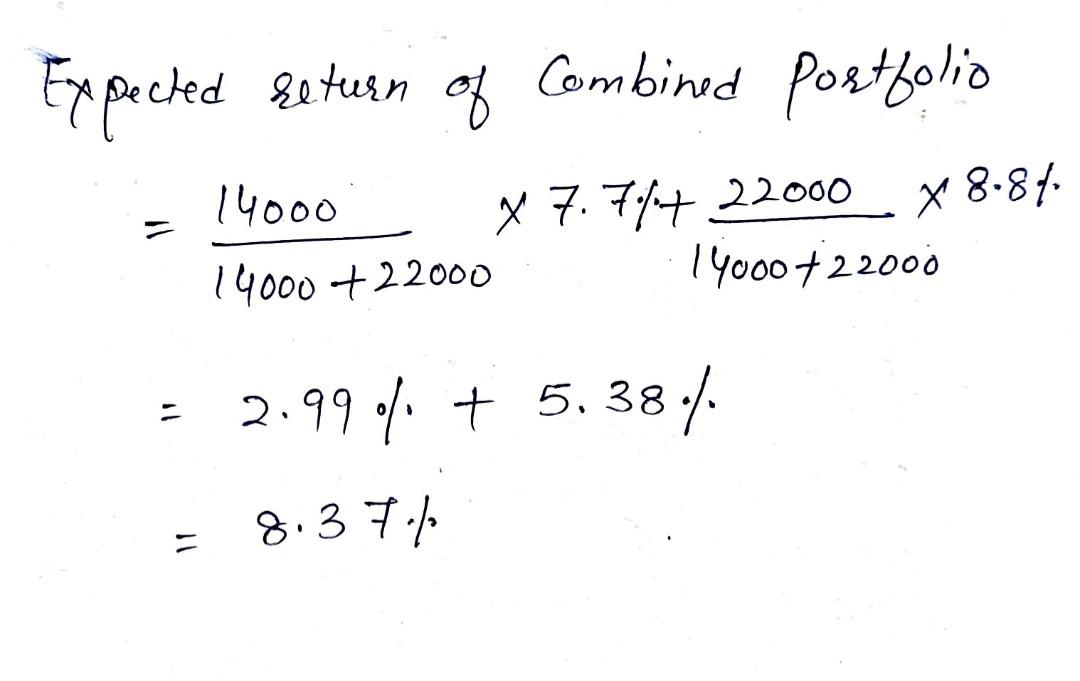 Expected return of Combined Portfolio
= 14000 / 14000 + 22000 × 7.7% + 22000 / 14000 + 22000 × 8.8%
= 2.99% + 5.38%
= 8.37%